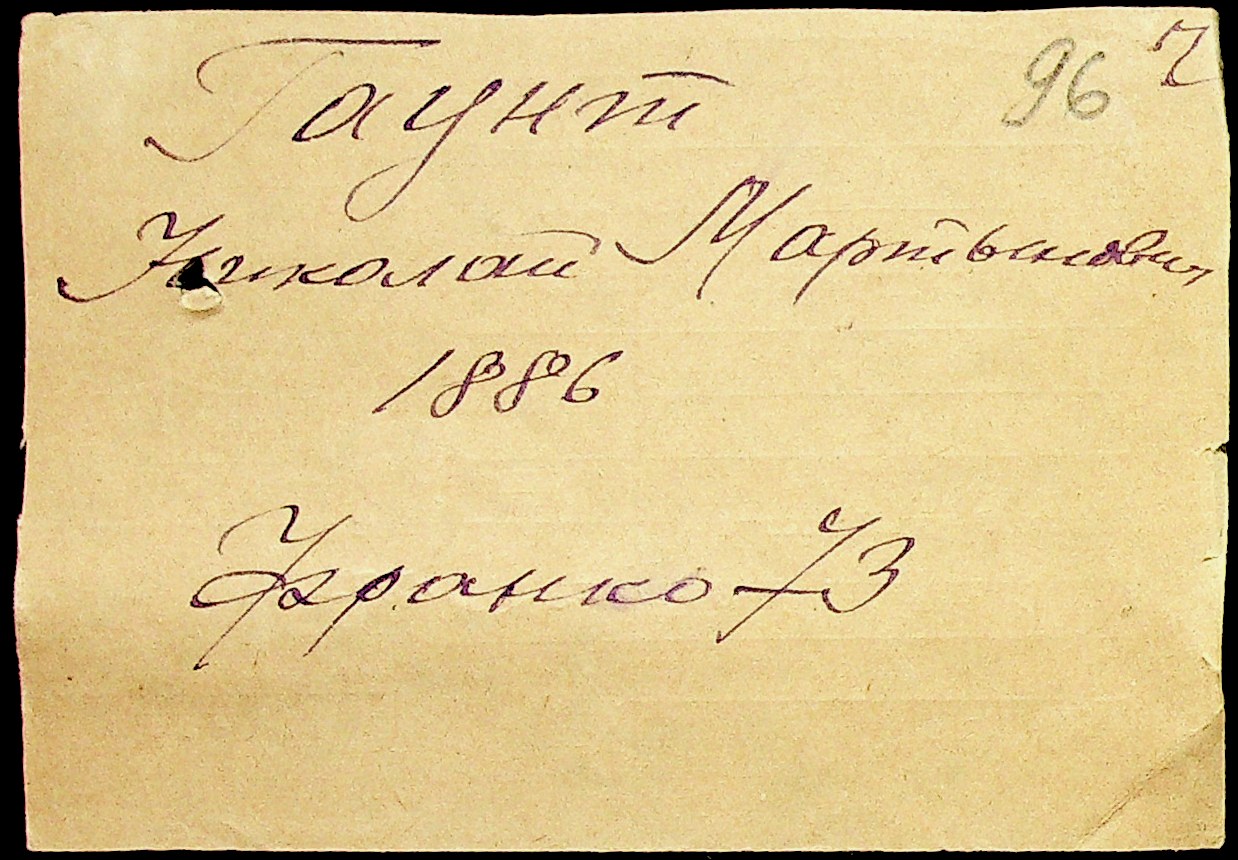 96 7
Гаунт
Николай Мартынович
1886
Франко 73